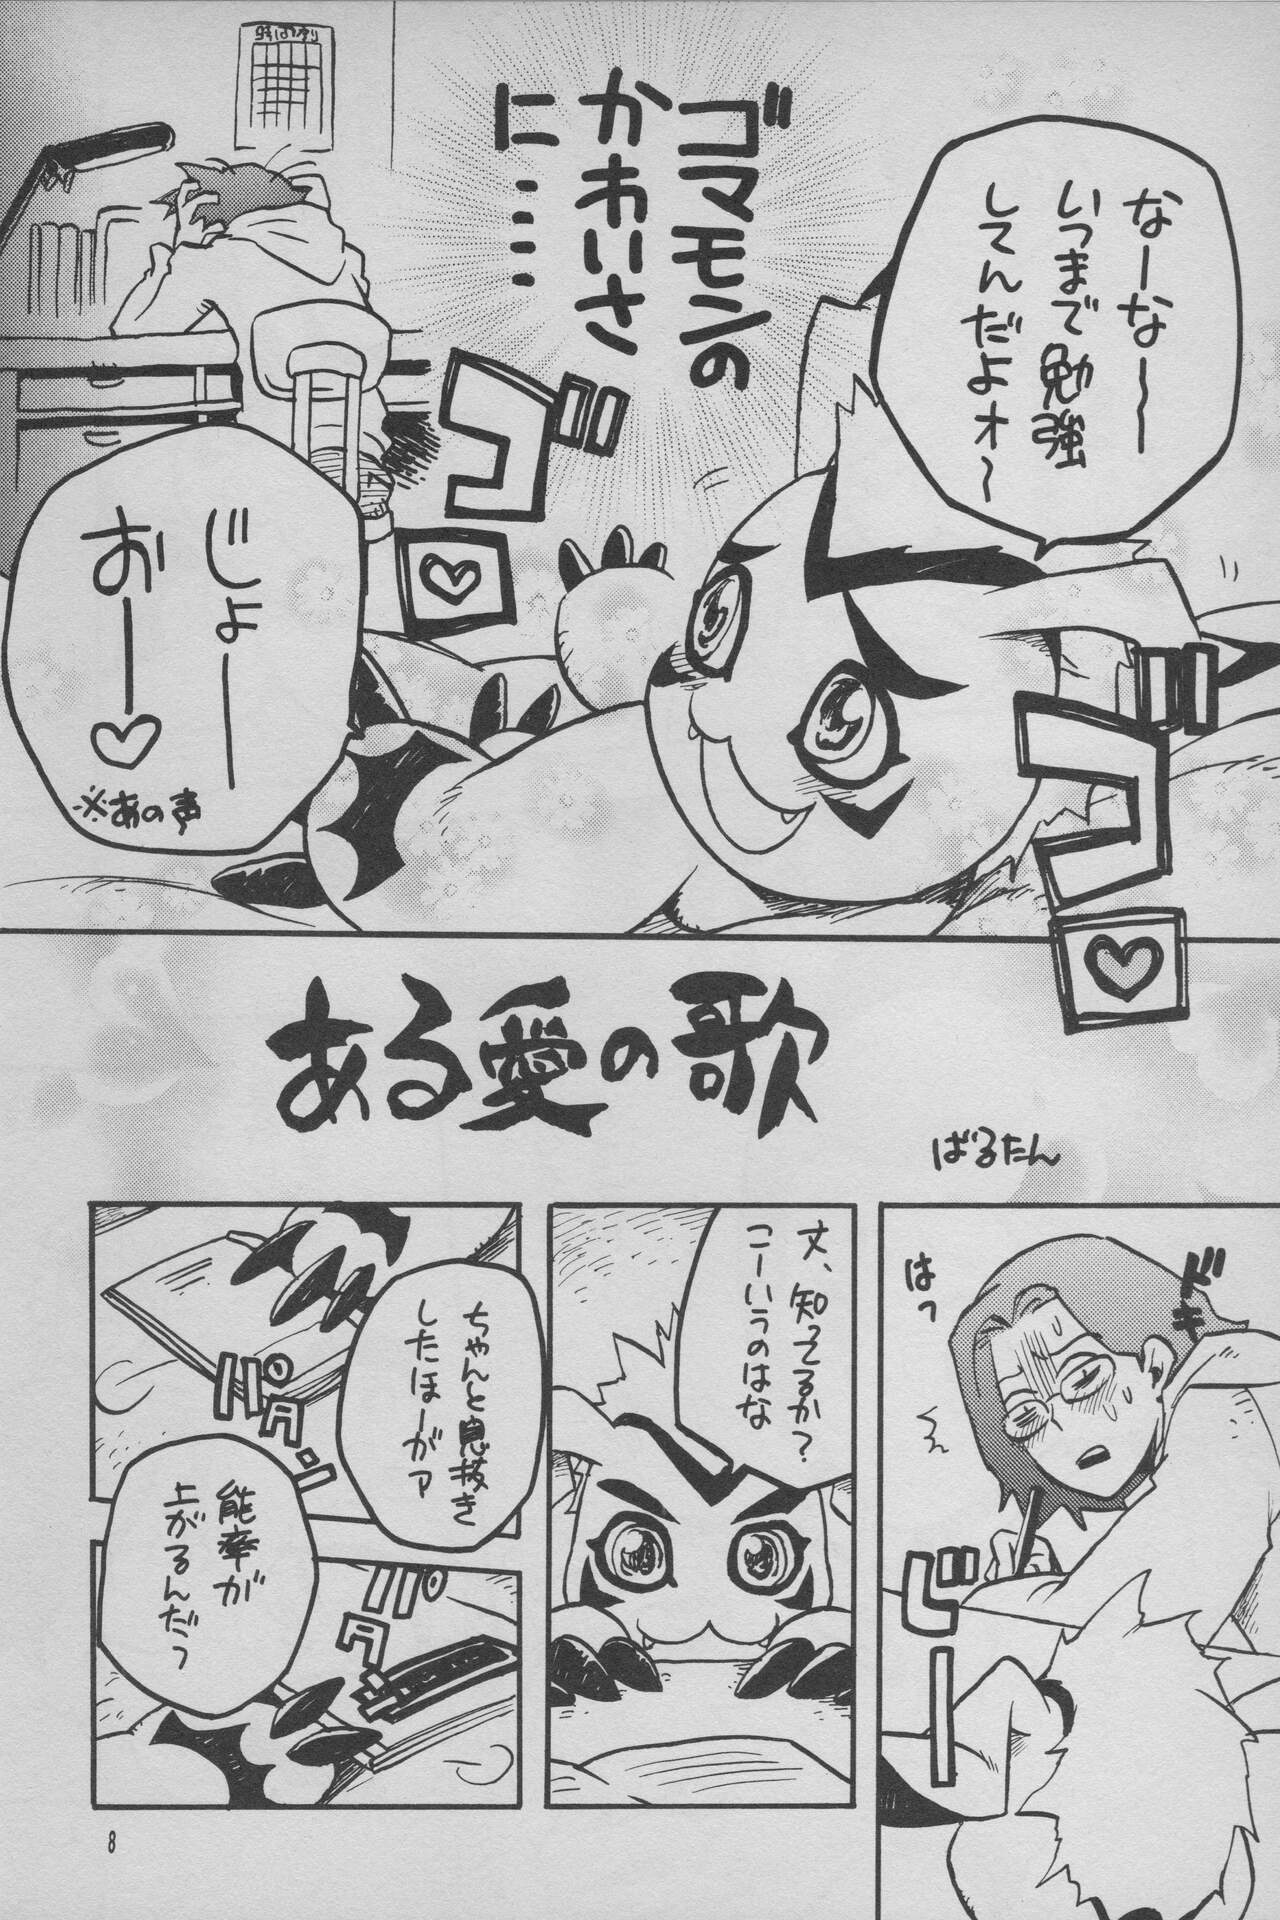 なーな〜〜
いつまで勉強
してんだよォ〜
ゴマモンの
かわいさ
に‥‥
ゴ
ゴ
じょーー
おーー♡
※あの声
ある愛の歌
ばるたん
ドキ
はっ
じー
丈、知ってるか?
こーいうのはな
ちゃんと息抜き
したほーがァ
パタン
能率が
上がるんだっ
パタ
8